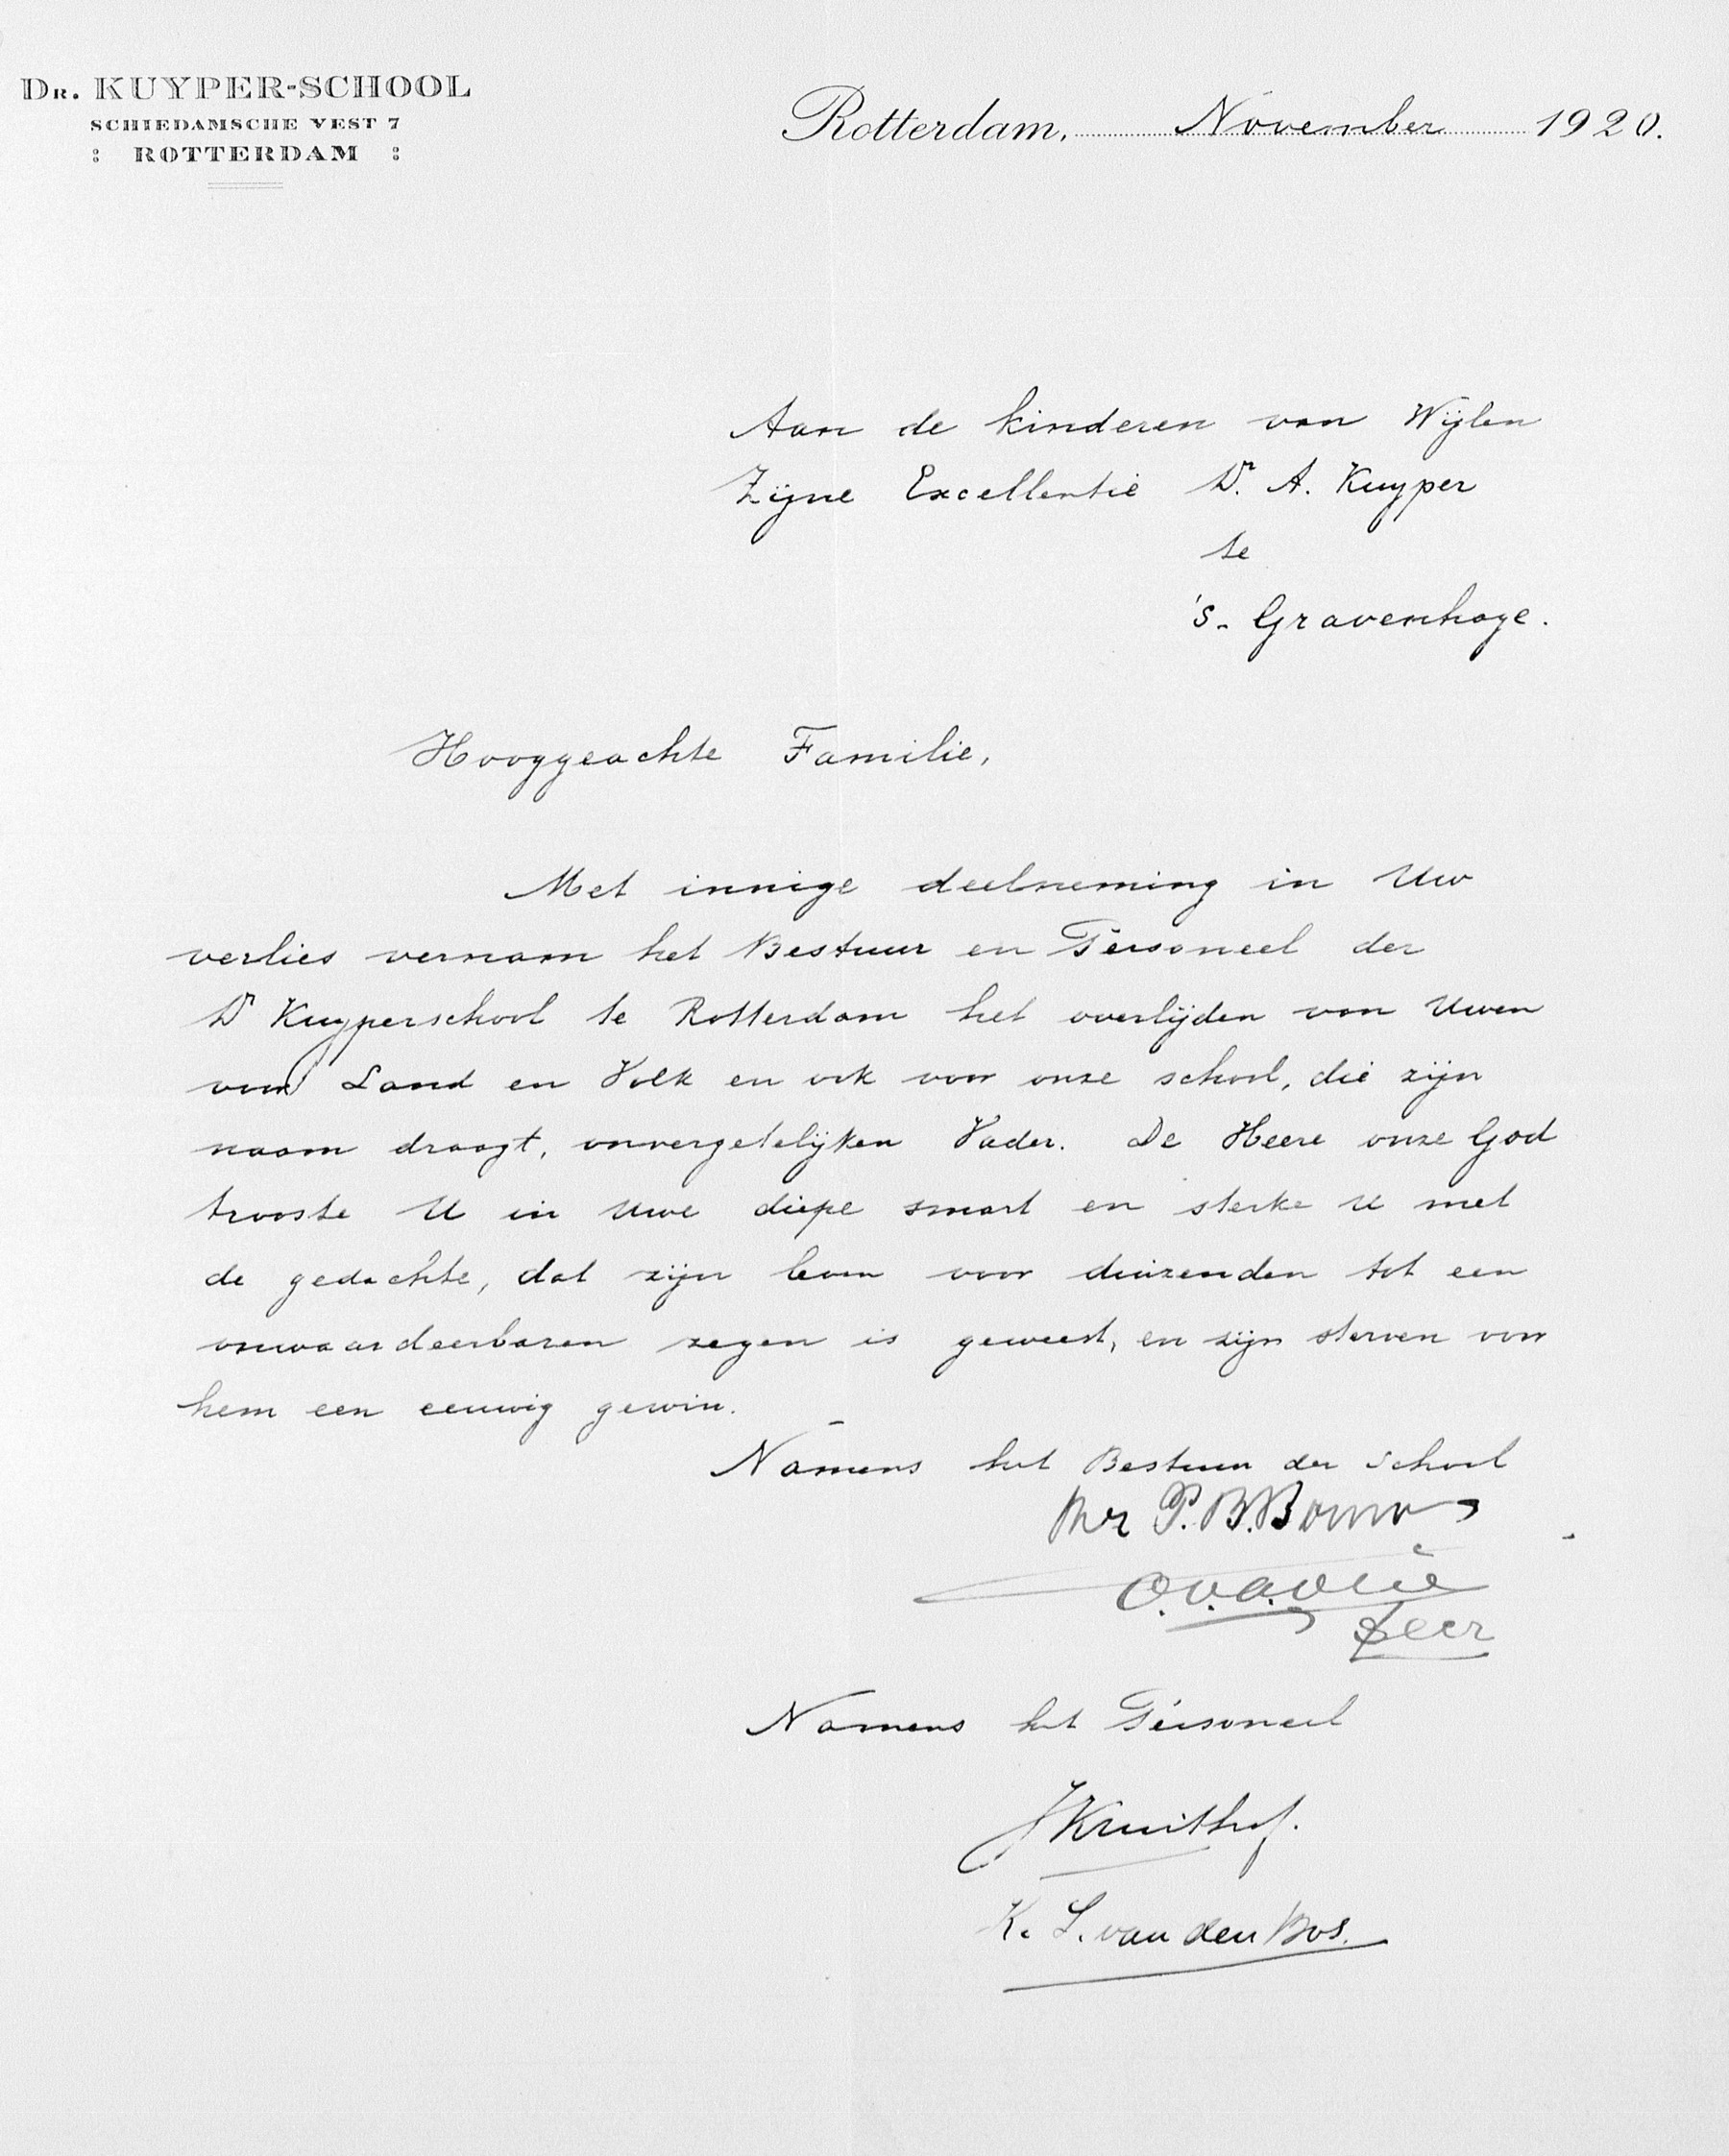 DR. KUYPER-SCHOOL
SCHIEDAMSCHE VEST 7
: ROTTERDAM :
Rotterdam, November 1920.
Aan de kinderen van Wijlen
Zijne Excellentie Dr. A. Kuyper
te
's-Gravenhage.
Hooggeachte Familie,
Met innige deelneming in Uw
verlies vernam het Bestuur en Personeel der
Dr Kuyperschool te Rotterdam het overlijden van Uwen
voor Land en Volk en ook voor onze school, die zijn
naam draagt, onvergetelijken Vader. De Heere onze God
trooste U in Uwe diepe smart en sterke U met
de gedachte, dat zijn leven voor duizenden tot een
onwaardeerbaren zegen is geweest, en zijn sterven voor
hem een eeuwig gewin.
Namens het Bestuur der School
Mr P. B. Bouw
Namens het Personeel
J Kruithof.
K. L. van den Bos.